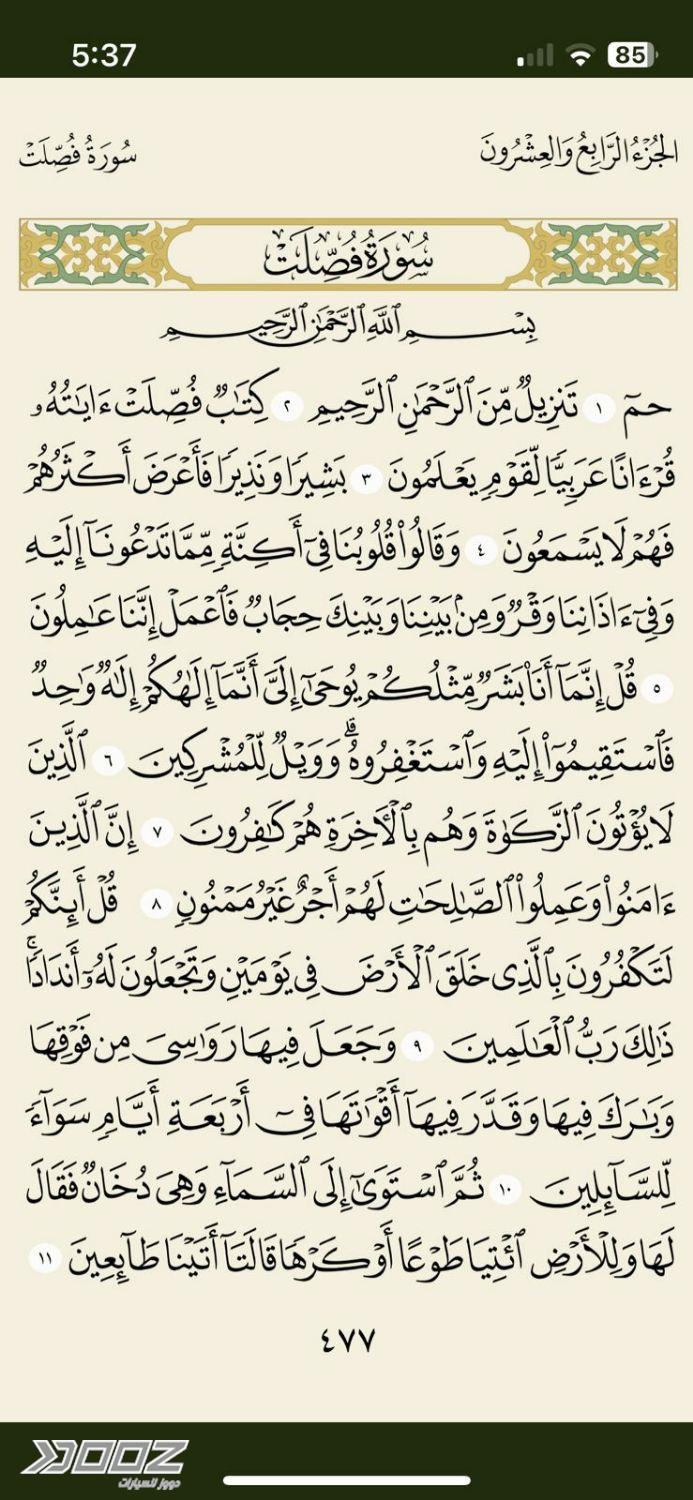 5:37
85
الجُزْءُ الرَّابِعُ وَالعِشْرُونَ
سُورَةُ فُصِّلَتْ
سُورَةُ فُصِّلَتْ
بِسْمِ ٱللَّهِ ٱلرَّحْمَٰنِ ٱلرَّحِيمِ
حمٓ ١ تَنزِيلٌ مِّنَ ٱلرَّحْمَٰنِ ٱلرَّحِيمِ ٢ كِتَٰبٌ فُصِّلَتْ ءَايَٰتُهُۥ
قُرْءَانًا عَرَبِيًّا لِّقَوْمٍ يَعْلَمُونَ ٣ بَشِيرًا وَنَذِيرًا فَأَعْرَضَ أَكْثَرُهُمْ
فَهُمْ لَا يَسْمَعُونَ ٤ وَقَالُوا۟ قُلُوبُنَا فِىٓ أَكِنَّةٍ مِّمَّا تَدْعُونَآ إِلَيْهِ
وَفِىٓ ءَاذَانِنَا وَقْرٌ وَمِنۢ بَيْنِنَا وَبَيْنِكَ حِجَابٌ فَٱعْمَلْ إِنَّنَا عَٰمِلُونَ
٥ قُلْ إِنَّمَآ أَنَا۠ بَشَرٌ مِّثْلُكُمْ يُوحَىٰٓ إِلَىَّ أَنَّمَآ إِلَٰهُكُمْ إِلَٰهٌ وَٰحِدٌ
فَٱسْتَقِيمُوٓا۟ إِلَيْهِ وَٱسْتَغْفِرُوهُ ۗ وَوَيْلٌ لِّلْمُشْرِكِينَ ٦ ٱلَّذِينَ
لَا يُؤْتُونَ ٱلزَّكَوٰةَ وَهُم بِٱلْءَاخِرَةِ هُمْ كَٰفِرُونَ ٧ إِنَّ ٱلَّذِينَ
ءَامَنُوا۟ وَعَمِلُوا۟ ٱلصَّٰلِحَٰتِ لَهُمْ أَجْرٌ غَيْرُ مَمْنُونٍ ٨ قُلْ أَئِنَّكُمْ
لَتَكْفُرُونَ بِٱلَّذِى خَلَقَ ٱلْأَرْضَ فِى يَوْمَيْنِ وَتَجْعَلُونَ لَهُۥٓ أَندَادًا ۚ
ذَٰلِكَ رَبُّ ٱلْعَٰلَمِينَ ٩ وَجَعَلَ فِيهَا رَوَٰسِىَ مِن فَوْقِهَا
وَبَٰرَكَ فِيهَا وَقَدَّرَ فِيهَآ أَقْوَٰتَهَا فِىٓ أَرْبَعَةِ أَيَّامٍ سَوَآءً
لِّلسَّآئِلِينَ ١٠ ثُمَّ ٱسْتَوَىٰٓ إِلَى ٱلسَّمَآءِ وَهِىَ دُخَانٌ فَقَالَ
لَهَا وَلِلْأَرْضِ ٱئْتِيَا طَوْعًا أَوْ كَرْهًا قَالَتَآ أَتَيْنَا طَآئِعِينَ ١١
٤٧٧
DOOZ
دووز للسيارات